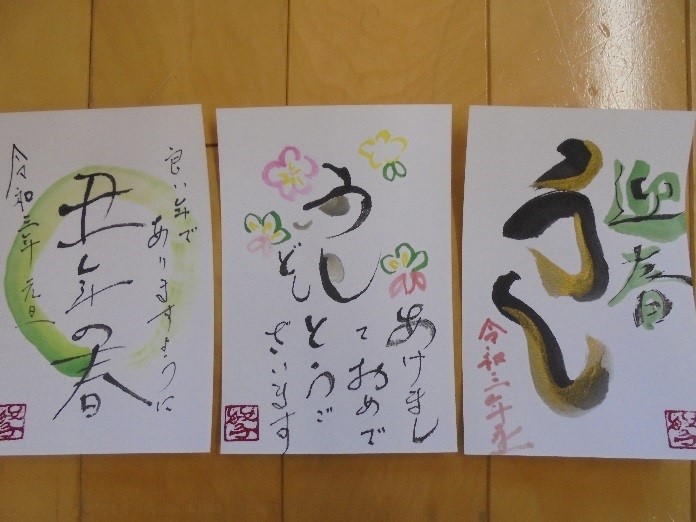 良い年で
ありますように
丑年の春
令和三年 元旦
うし
どし
あけまし
ておめで
とうご
ざいます
迎春
うし
令和三年